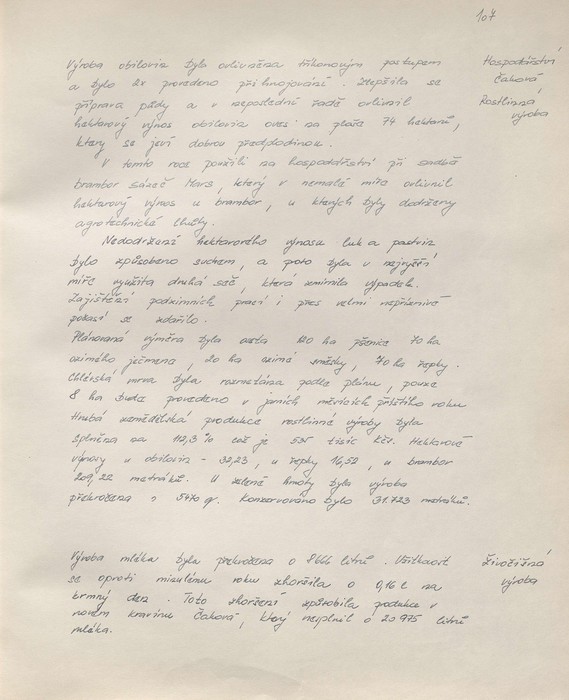 107
Výroba obilovin byla ovlivněna tříhonovým postupem
a bylo 2x provedeno přihnojování. Zlepšila se
příprava půdy a v neposlední řadě ovlivnil
hektarový výnos obilovin oves na ploše 74 hektarů,
který se jeví dobrou předplodinou.
V tomto roce použili na hospodářství při sázení
brambor sázeč Mars, který v nemalé míře ovlivnil
hektarový výnos u brambor, u kterých byly dodrženy
agrotechnické lhůty.
Nedodržení hektarového výnosu luk a pastvin
bylo způsobeno suchem, a proto byla v nejvyšší
míře využita druhá seč, která zmírnila výpadek.
Zajištění podzimních prací i přes velmi nepříznivé
počasí se zdařilo.
Plánovaná výměra byla oseta 120 ha pšenice 70 ha
ozimého ječmene, 20 ha ozimé směsky, 70 ha řepky.
Chlévská mrva byla rozmetána podle plánu, pouze
8 ha bude provedeno v jarních měsících příštího roku
Hrubá zemědělská produkce rostlinné výroby byla
splněna na 112,3 % což je 535 tisíc Kčs. Hektarové
výnosy u obilovin - 32,23, u řepky 16,52, u brambor
209,22 metráků. U zelené hmoty byla výroba
překročena o 5470 qr. Konzervováno bylo 31.723 metráků.
Výroba mléka byla překročena o 8666 litrů. Užitkovost
se oproti minulému roku zhoršila o 0,16 l na
krmný den. Toto zhoršení způsobila produkce v
novém kravínu Čakova, který nesplnil o 20 975 litrů
mléka.
Hospodářství
Čakova
Rostlinná
výroba
Živočišná
výroba